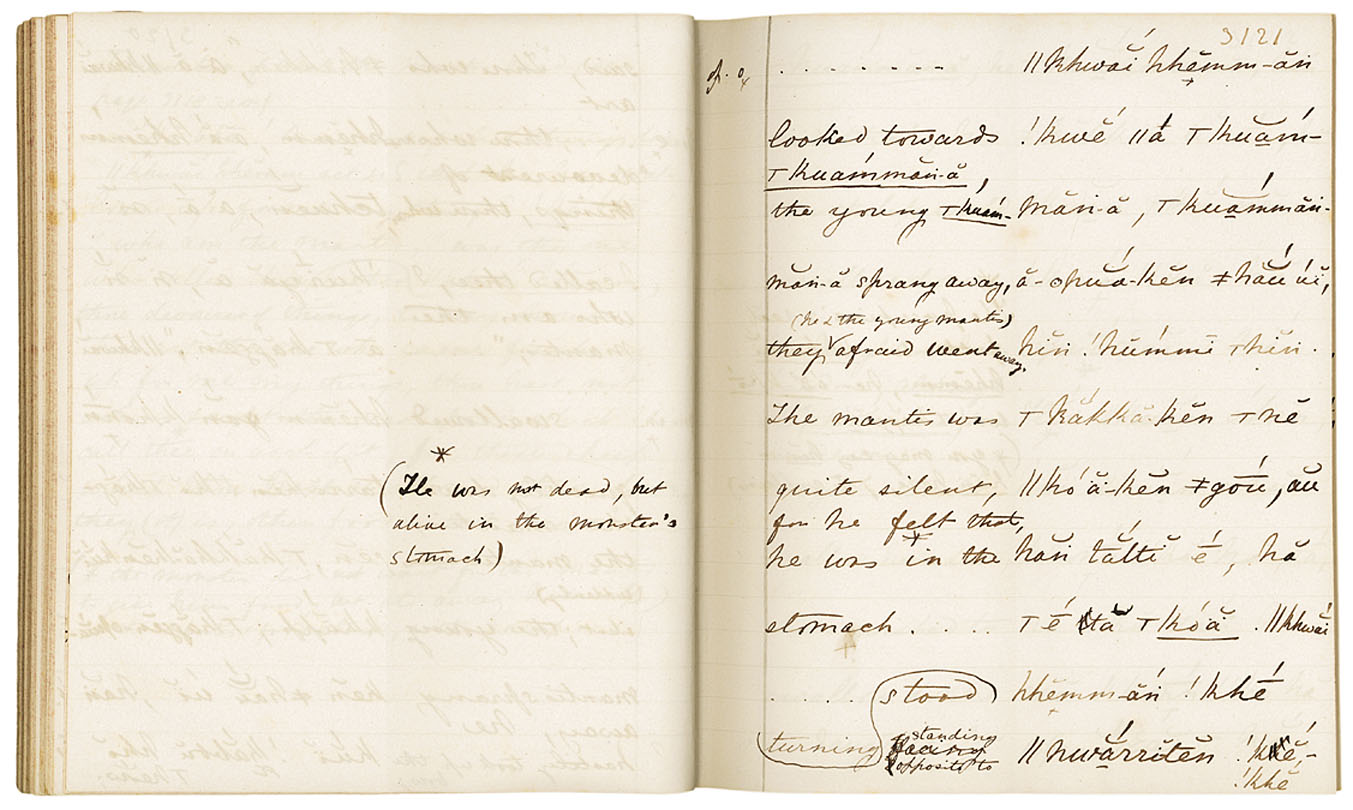 *
(He was not dead, but
alive in the monster's
stomach)
3121
. . . . . . . ǁkhwāĭ hhĕmm-ăn
looked towards !kwĕ́ ǁá ꞇ kuắm-
ꞇ kuắmmăn-ă,
the young ꞇ kuắm- măn-ă, ꞇ kuắmmăn-
măn-ă sprang away, ă-opuắ-kĕn ǂhắu úĭ,
(he & the young mantis)
they afraid went away. hĭn !húmmĭ ꞇ hĭn.
The mantis was ꞇ kăkkă-kĕn ꞇ nĕ
quite silent, ǁkó̆ă-kĕn ǂgōú, ău
for he felt that,
*
he was in the hăn tắttĭ é, hă
stomach . . . . ꞇ é tă ꞇ kó́ă . ǁkhwāĭ
. . . . stood hhĕmm-ăn !khé
turning standing
opposite to ǁhwắrrĭtĕn !khé,-
!khĕ